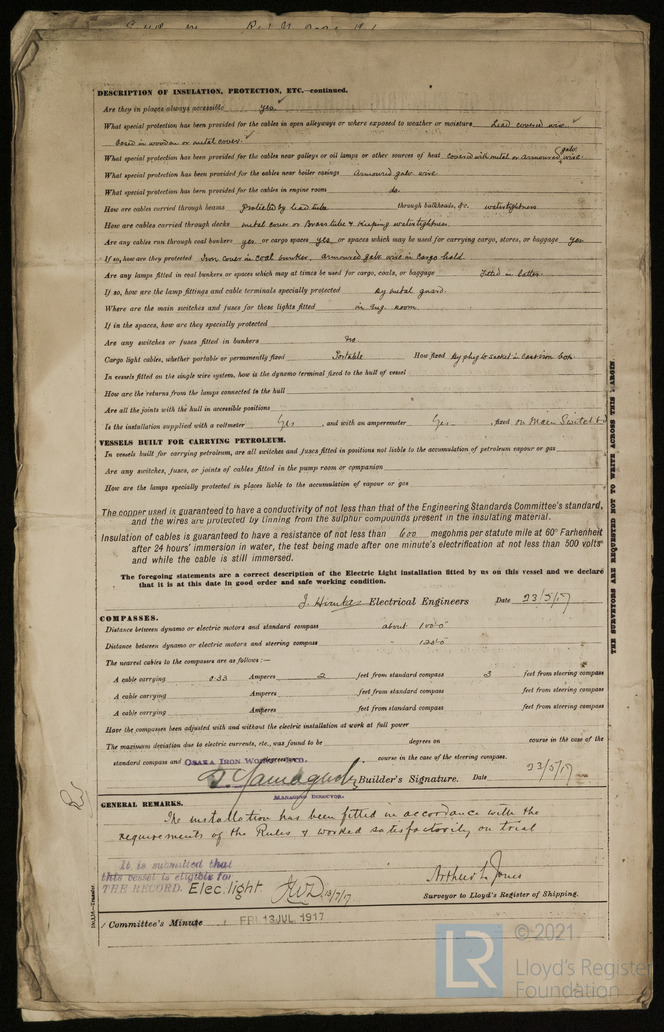 DESCRIPTION OF INSULATION, PROTECTION, ETC.—continued.
Are they in places always accessible yes
What special protection has been provided for the cables in open alleyways or where exposed to weather or moisture Lead covered wire
boxed in wooden or metal cover.
What special protection has been provided for the cables near galleys or oil lamps or other sources of heat covered with metal or armoured galv. wire.
What special protection has been provided for the cables near boiler casings Armoured galv. wire
What special protection has been provided for the cables in engine room do.
How are cables carried through beams Protected by lead tube through bulkheads, &c. watertightness
How are cables carried through decks metal cover or Brass tube & keeping watertightness
Are any cables run through coal bunkers yes or cargo spaces yes or spaces which may be used for carrying cargo, stores, or baggage yes
If so, how are they protected Iron cover in coal bunker, armoured galv. wire in Cargo hold.
Are any lamps fitted in coal bunkers or spaces which may at times be used for cargo, coals, or baggage Fitted in latter.
If so, how are the lamp fittings and cable terminals specially protected By metal guard.
Where are the main switches and fuses for these lights fitted in Eng. room
If in the spaces, how are they specially protected
Are any switches or fuses fitted in bunkers No.
Cargo light cables, whether portable or permanently fixed Portable How fixed By plug & socket in Cast iron box
In vessels fitted on the single wire system, how is the dynamo terminal fixed to the hull of vessel
How are the returns from the lamps connected to the hull
Are all the joints with the hull in accessible positions
Is the installation supplied with a voltmeter Yes , and with an amperemeter Yes , fixed on Main Switch
VESSELS BUILT FOR CARRYING PETROLEUM.
In vessels built for carrying petroleum, are all switches and fuses fitted in positions not liable to the accumulation of petroleum vapour or gas
Are any switches, fuses, or joints of cables fitted in the pump room or companion
How are the lamps specially protected in places liable to the accumulation of vapour or gas
The copper used is guaranteed to have a conductivity of not less than that of the Engineering Standards Committee's standard,
and the wires are protected by tinning from the sulphur compounds present in the insulating material.
Insulation of cables is guaranteed to have a resistance of not less than 600 megohms per statute mile at 60° Farhenheit
after 24 hours' immersion in water, the test being made after one minute's electrification at not less than 500 volts
and while the cable is still immersed.
The foregoing statements are a correct description of the Electric Light installation fitted by us on this vessel and we declare
that it is at this date in good order and safe working condition.
Electrical Engineers Date 23/5/17
COMPASSES.
Distance between dynamo or electric motors and standard compass about
Distance between dynamo or electric motors and steering compass
The nearest cables to the compasses are as follows:—
A cable carrying 0.33 Amperes 2 feet from standard compass 3 feet from steering compass
A cable carrying Amperes feet from standard compass feet from steering compass
A cable carrying Amperes feet from standard compass feet from steering compass
Have the compasses been adjusted with and without the electric installation at work at full power
The maximum deviation due to electric currents, etc., was found to be degrees on course in the case of the
standard compass and degrees on course in the case of the steering compass.
OSAKA IRON WORKS, LTD.
Builder's Signature. Date 23/5/17
MANAGING DIRECTOR.
GENERAL REMARKS.
The installation has been fitted in accordance with the
requirements of the Rules & worked satisfactorily on trial
It is submitted that
this vessel is eligible for
THE RECORD. Elec. light 13/7/17
Arthur L. Jones
Surveyor to Lloyd's Register of Shipping.
Committee's Minute FRI 13 JUL 1917
THE SURVEYORS ARE REQUESTED NOT TO WRITE ACROSS THIS MARGIN
© 2021
LR Lloyd's Register
Foundation